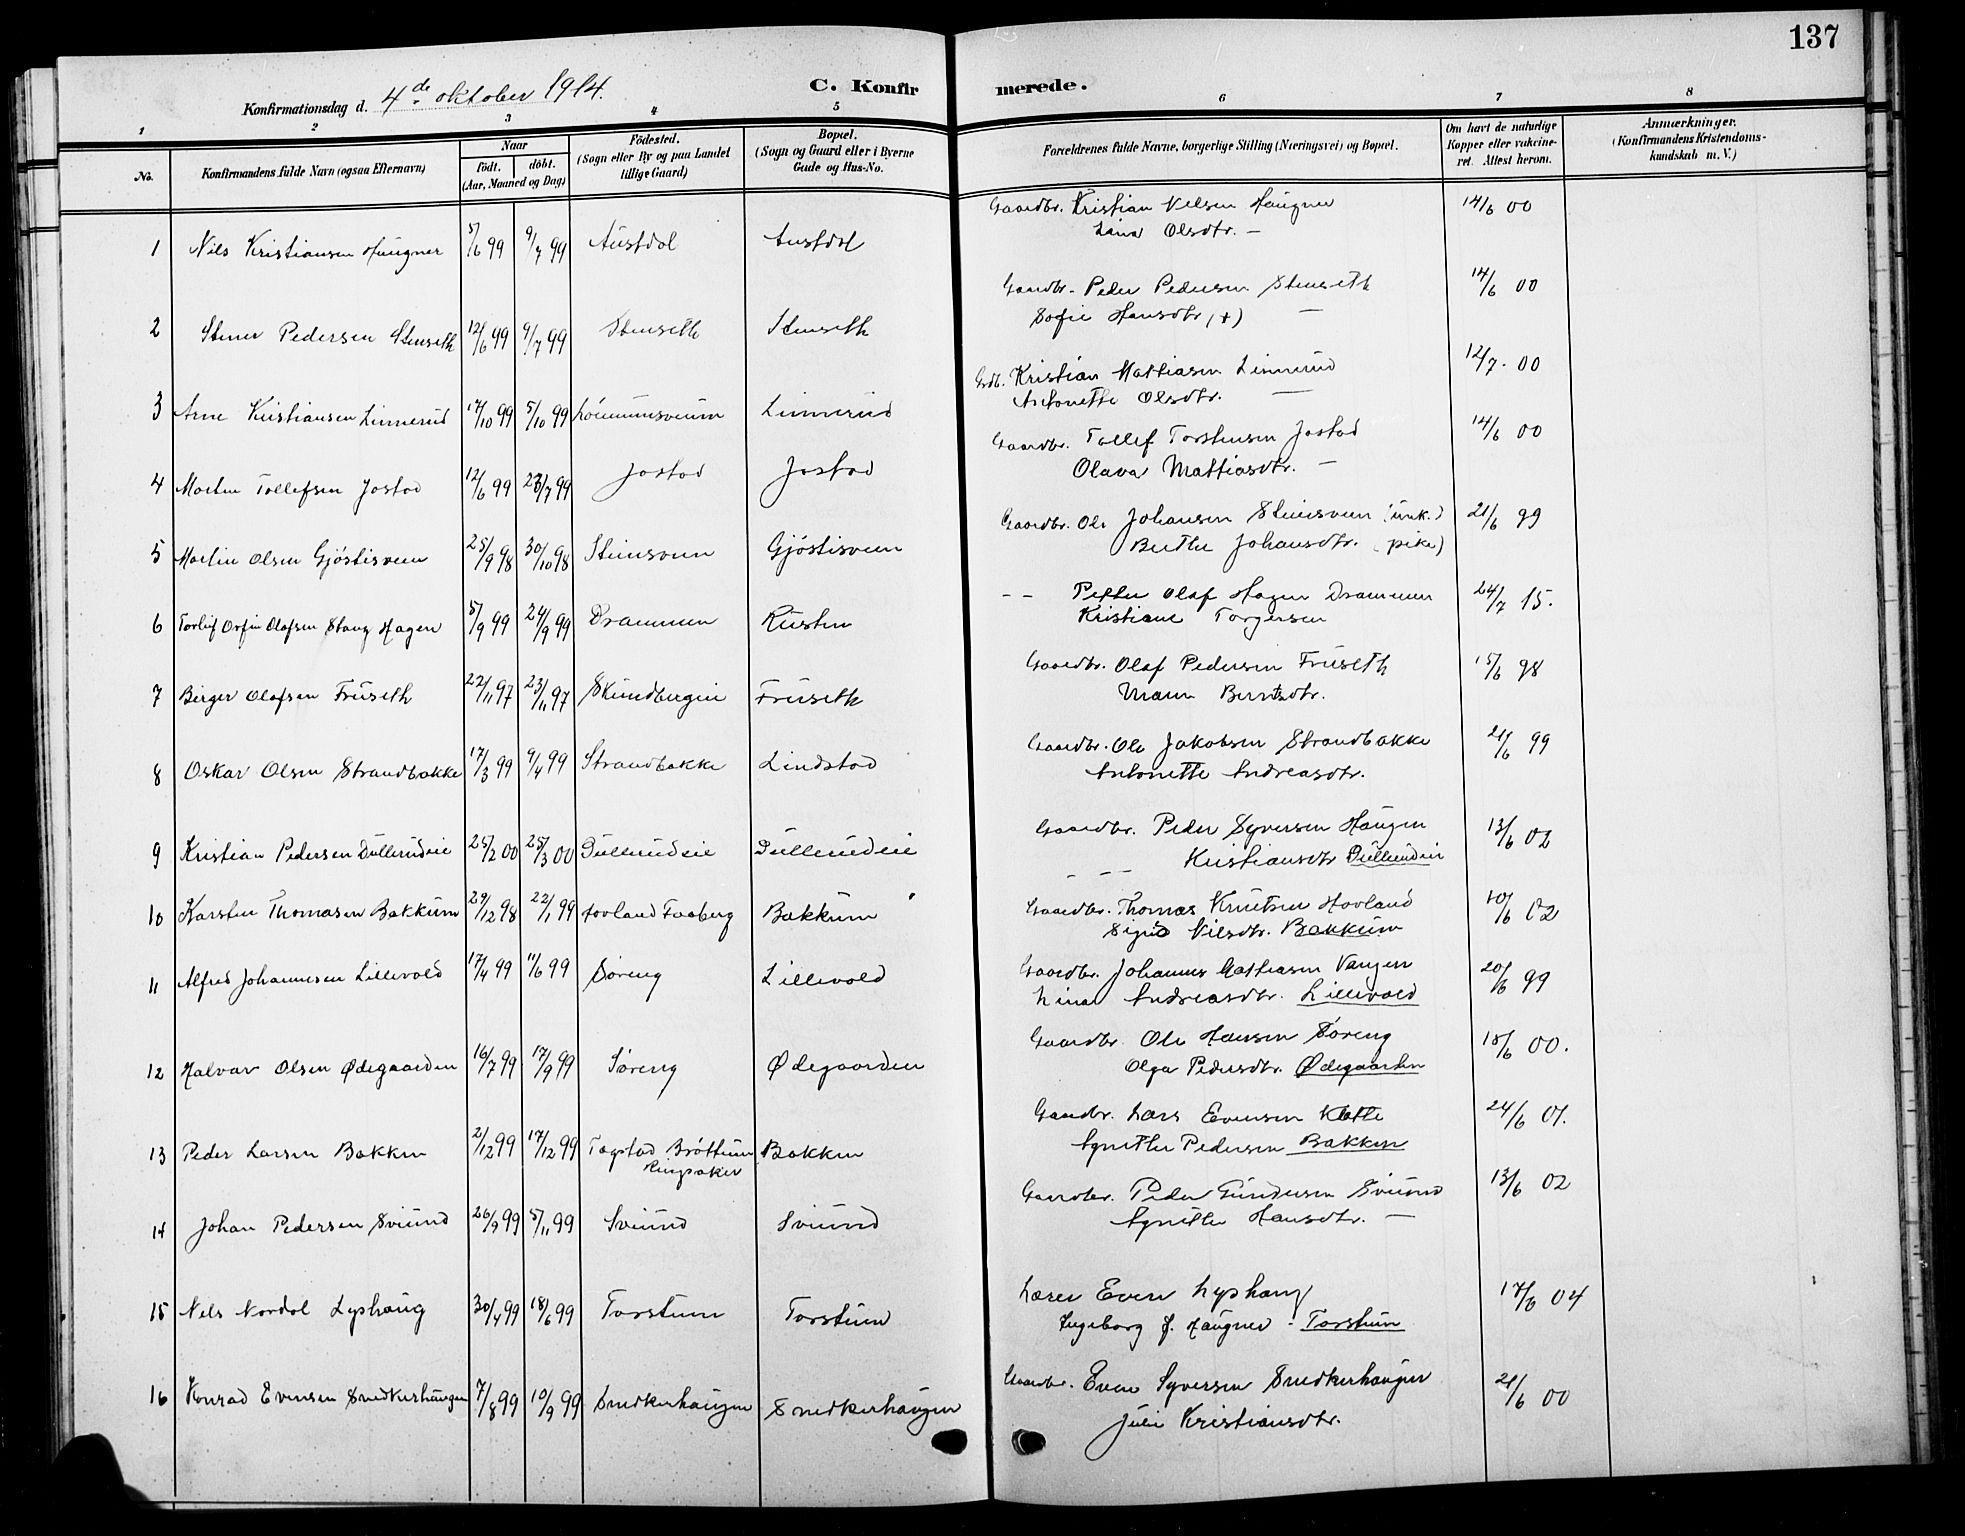 137
Konfirmationsdag d. 4de oktober 1914.
C. Konfirmerede.
1 2 3 4 5 6 7 8
No.
Konfirmandens fulde Navn (ogsaa Efternavn)
Naar
födt. döbt.
(Aar, Maaned og Dag)
Födested.
(Sogn eller By og paa Landet
tillige Gaard)
Bopæl.
(Sogn og Gaard eller i Byerne
Gade og Hus-No.
Forældrenes fulde Navne, borgerlige Stilling (Næringsvei) og Bopæl.
Om havt de naturlige
Kopper eller vakcine-
ret. Attest herom.
Anmærkninger.
(Konfirmandens Kristendoms-
kundskab m. V.)
1 Nils Kristiansen Haugner 5/6 99 9/7 99 Austdal Austdal Gaardbr. Kristian Nilsen Haugner 14/6 00
Lina Olsdtr. —
2 Stener Pedersen Stenseth 12/6 99 9/7 99 Stenseth Stenseth Gaardbr. Peder Pedersen Stenseth 14/6 00
Sofie Hansdtr. (+) —
3 Arne Kristiansen Linnerud 17/10 99 5/10 99 Linnerud Grdb. Kristian Mathiasen Linnerud 12/7 00
Antonette Olsdtr. —
4 Martin Tollefsen Jostad 12/6 99 23/7 99 Jostad Jostad Gaardbr. Tollef Torstensen Jostad 14/6 00
Olava Mathiasdtr. —
5 Martin Olsen Gjøstisveen 25/9 98 30/10 98 Stensveen Gjøstisveen Gaardbr. Ole Johansen Stensveen (unk.) 21/6 99
Berthe Johansdtr. (pike)
6 Torleif Orfin Olafsen Stang Hagen 5/9 99 24/9 99 Drammen Rusten – – Petter Olaf Hagen Drammen 24/7 15.
Kristiane Torgersen
7 Birger Olafsen Fruseth 22/11 97 23/11 97 Skundbergeie Fruseth Gaardbr. Olaf Pedersen Fruseth 15/6 98
Maren Berntsdtr.
8 Oskar Olsen Strandbakke 17/3 99 9/4 99 Strandbakke Lindstad Gaardbr. Ole Jakobsen Strandbakke 21/6 99
Antonette Andreasdtr.
9 Kristian Pedersen Dullerudeie 25/2 00 25/3 00 Dullerudeie Dullerudeie Gaardbr. Peder Syversen Haugen 13/6 02
– – – Kristiansdtr Dullerudeie
10 Karsten Thomasen Bakkum 29/12 98 22/1 99 Hovland Faaberg Bakkum Gaardbr. Thomas Knutsen Hovland 10/6 02
Sigrid Nilsdtr. Bakkum
11 Alfred Johannesen Lillevold 17/4 99 11/6 99 Søreng Lillevold Gaardbr. Johannes Mathiasen Vangen 20/6 99
Lina Andreasdtr. Lillevold
12 Halvar Olsen Ødegaarden 16/7 99 17/9 99 Søreng Ødegaarden Gaardbr. Ole Hansen Søreng 15/6 00.
Olga Pedersdtr. Ødegaarden
13 Peder Larsen Bakken 2/12 99 17/12 99 Tagstad Brøttum Bakken Gaardbr. Lars Evensen Klette 24/6 01.
Ringsaker Agnethe Pedersen Bakken
14 Johan Pedersen Sviund 26/9 99 5/11 99 Sviund Sviund Gaardbr. Peder Gundersen Sviund 13/6 02
Agnethe Hansdtr. —
15 Nils Nordal Lyshaug 30/4 99 18/6 99 Torstum Torstum Lærer Even Lyshaug 17/6 04
Ingeborg f. Haugner - Torstum
16 Konrad Evensen Snedkerhaugen 7/8 99 10/9 99 Snedkerhaugen Snedkerhaugen Gaardbr. Even Syversen Snedkerhaugen 21/6 00
Julie Kristiansdtr.